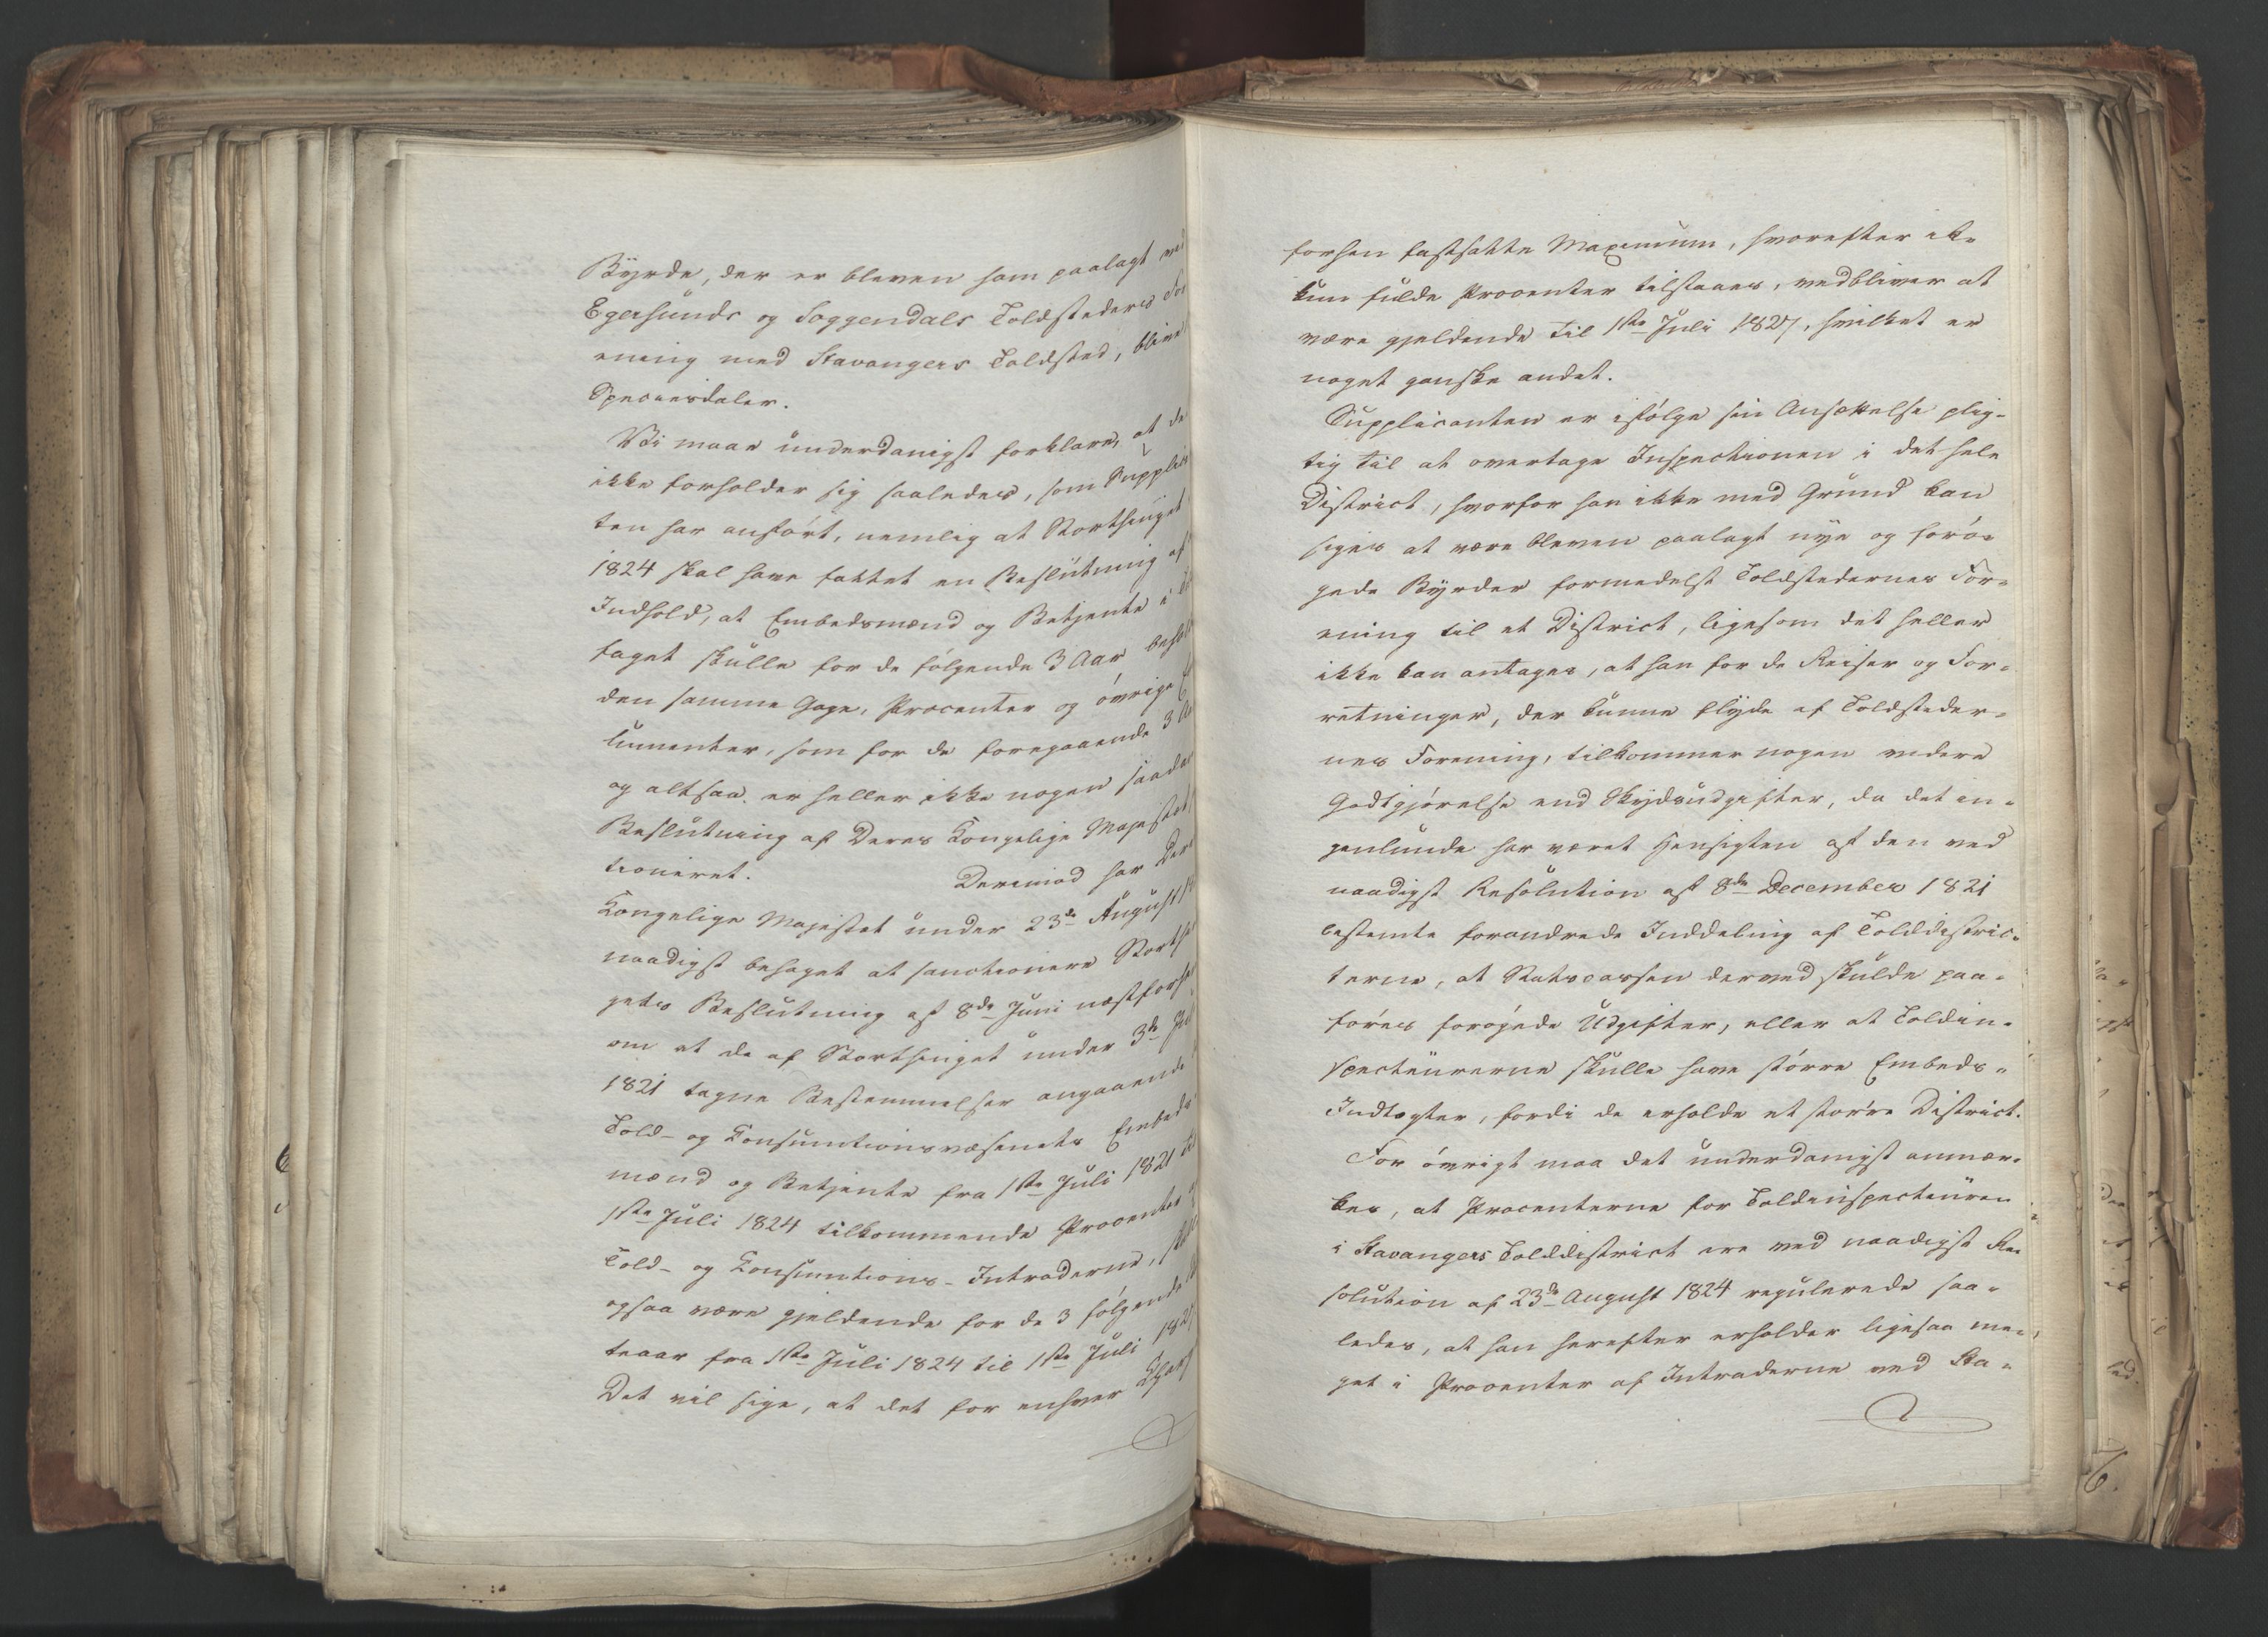 Byrde, der er bleven ham paalagt ved
Egersunds og Soggendals Toldsteders For
ening med Stavangers Toldsted, blive
Speciesdaler.
Vi maae underdanigst forklare, at de
ikke forholder sig saaledes, som Supplic
ten har anført, nemlig at Storthinget
1824 skal have fattet en Beslutning af
Indhold, at Embedsmænd og Betjente i
faget skulle for de følgende 3 Aar behol
den samme Gage, Procenter og øvrige E
lumenter, som for de foregaaende 3 Aa
og altsaa er heller ikke nogen saadan
Beslutning af Deres Kongelige Majestæt
tioneret. Derimod har Der
Kongelige Majestæt under 23de August
naadigst behaget at sanctionere Storthi
gets Beslutning af 8de Juni næstforhe
om at de af Storthinget under 3de Jul
1821 tagne Bestemmelser angaaende
Told- og Consumtionsvæsenets Embeds
mænd og Betjente fra 1ste Juli 1821 til
1ste Juli 1824 tilkommende Procenter
Told- og Consumtions-Intraderne, skal
ogsaa være gjeldende for de 3 følgende
teaar fra 1ste Juli 1824 til 1ste Juli 1827
Det vil sige, at det for enhver
forhen fastsatte Maximum, hvorefter ik-
kun fulde Procenter tilstaaes, vedbliver at
være gjeldende til 1ste Juli 1827, hvilket er
noget ganske andet.
Supplicanten er ifølge sin Ansættelse plig-
tig til at overtage Inspectionen i det hele
District, hvorfor han ikke med Grund kan
siges at være bleven paalagt nye og forø-
gede Byrder formedelst Toldstedernes For-
ening til et District, ligesom det heller
ikke kan antages, at han for de Reiser og For-
retninger, der kunne flyde af Toldsteder-
nes Forening, tilkommer nogen videre
Godtgjørelse end Skydsudgifter, da det in-
genlunde har været Hensigten af den ved
naadigst Resolution af 8de December 1821
bestemte forandrede Inddeling af Tolddistric-
terne, at Statscassen derved skulde paa-
føres forøgede Udgifter, eller at Toldin-
specteurerne skulle have større Embeds-
Indtægter, fordi de erholde et større District.
For øvrigt maa det underdanigst anmær-
kes, at Procenterne for Toldinspecteuren
i Stavangers Tolddistrict ere ved naadigst Re-
solution af 23de August 1824 regulerede saa-
ledes, at han herefter erholder ligesaa me-
get i Procenter af Intraderne ved Sta-